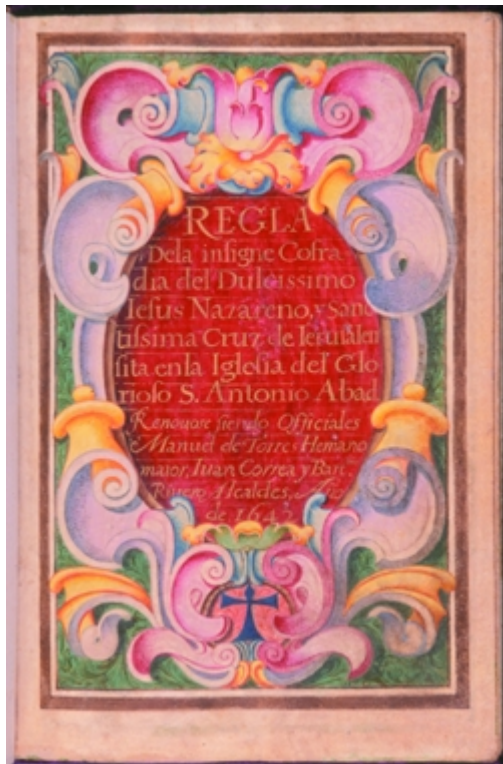 REGLA
Dela insigne Cofra
dia del Dulcissimo
Iesus Nazareno, y Sanc
tissima Cruz de Ierusalen
sita enla Iglesia del Glo
rioso S. Antonio Abad
Renovose siendo Officiales
Manuel de Torres Hermano
maior, Iuan Correa y Bar.
Rivero Alcaldes, Año
de 1643